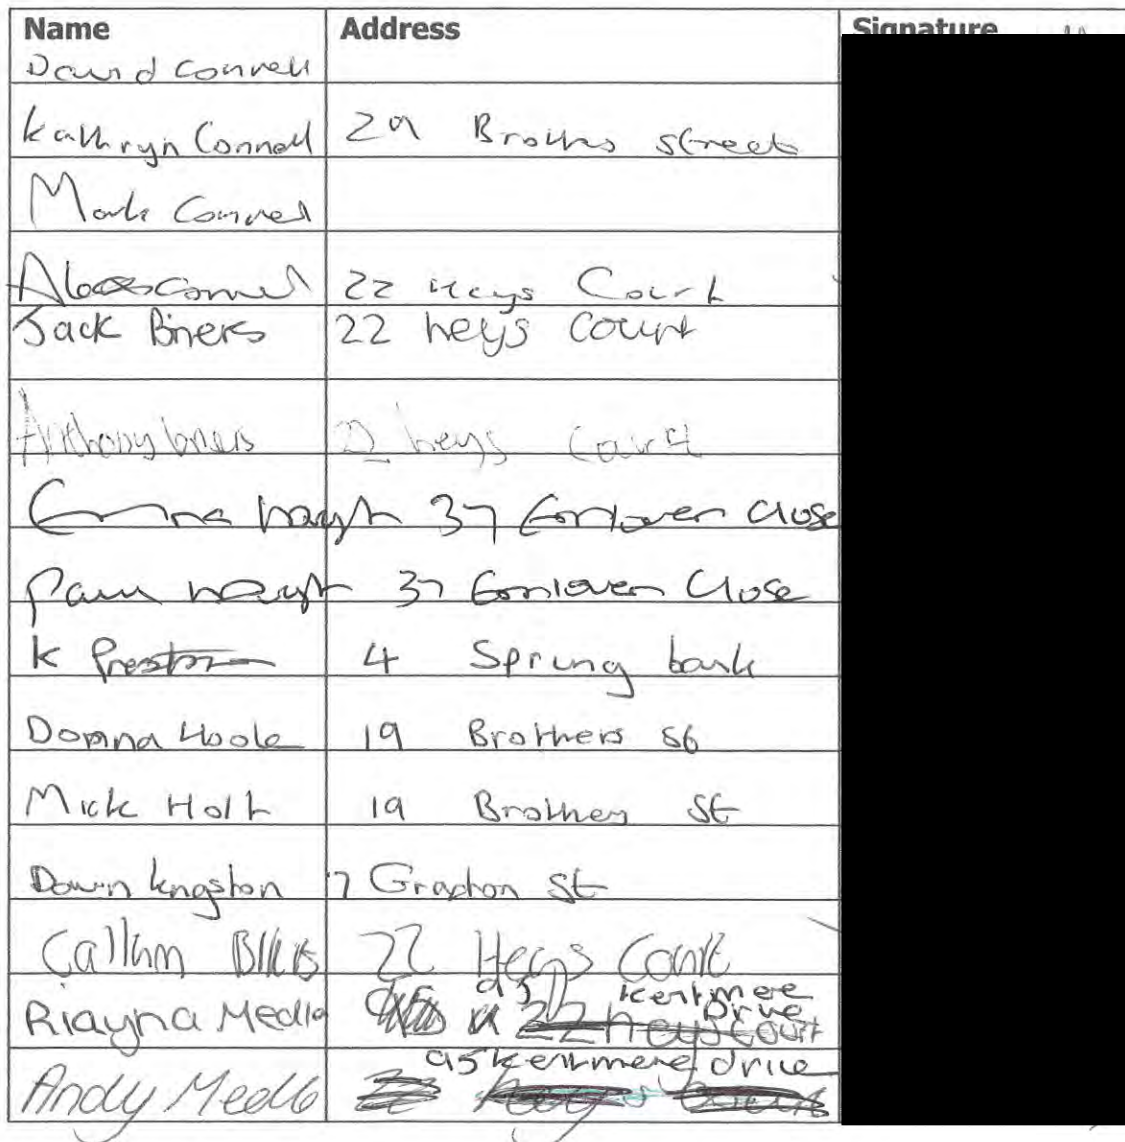 Name Address Signature
David Connell
Kathryn Connell 29 Brothers street
Mark Connell
Connell 22 Heys Court
Jack Briers 22 heys court
Anthony briers 22 heys Court
Emma haugh 37 Close
Paul haugh 37 Close
K Preston 4 Spring bank
Donna Hoole 19 Brothers St
Mick Holt 19 Brothers St
Dawn kingston 7 St
Callum 22 Heys Court
95 Kentmere
Riayna Drive
22 heys court
95 kentmere drive
Andy